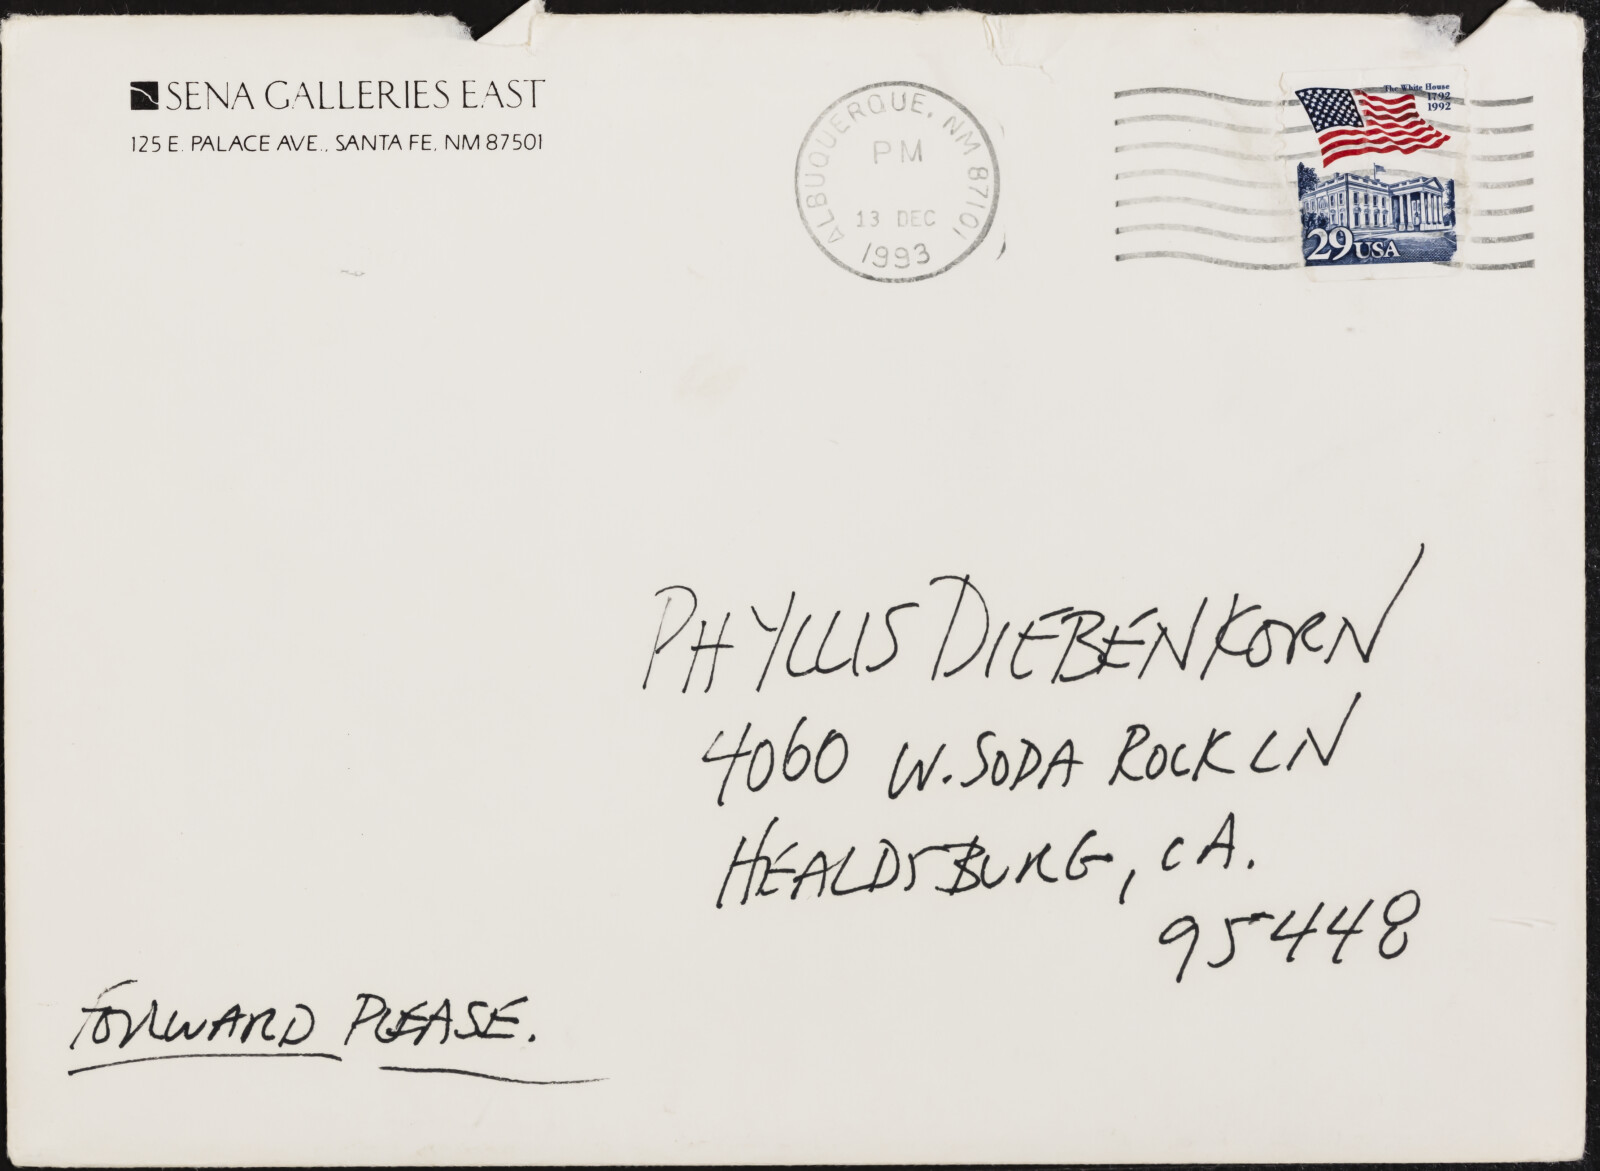 SENA GALLERIES EAST
125 E. PALACE AVE., SANTA FE, NM 87501
ALBUQUERQUE, NM 87101
PM
13 DEC
1993
The White House
1792
1992
29 USA
PHYLLIS DIEBENKORN
4060 W. SODA ROCK LN
HEALDSBURG, CA.
95448
FORWARD PLEASE.